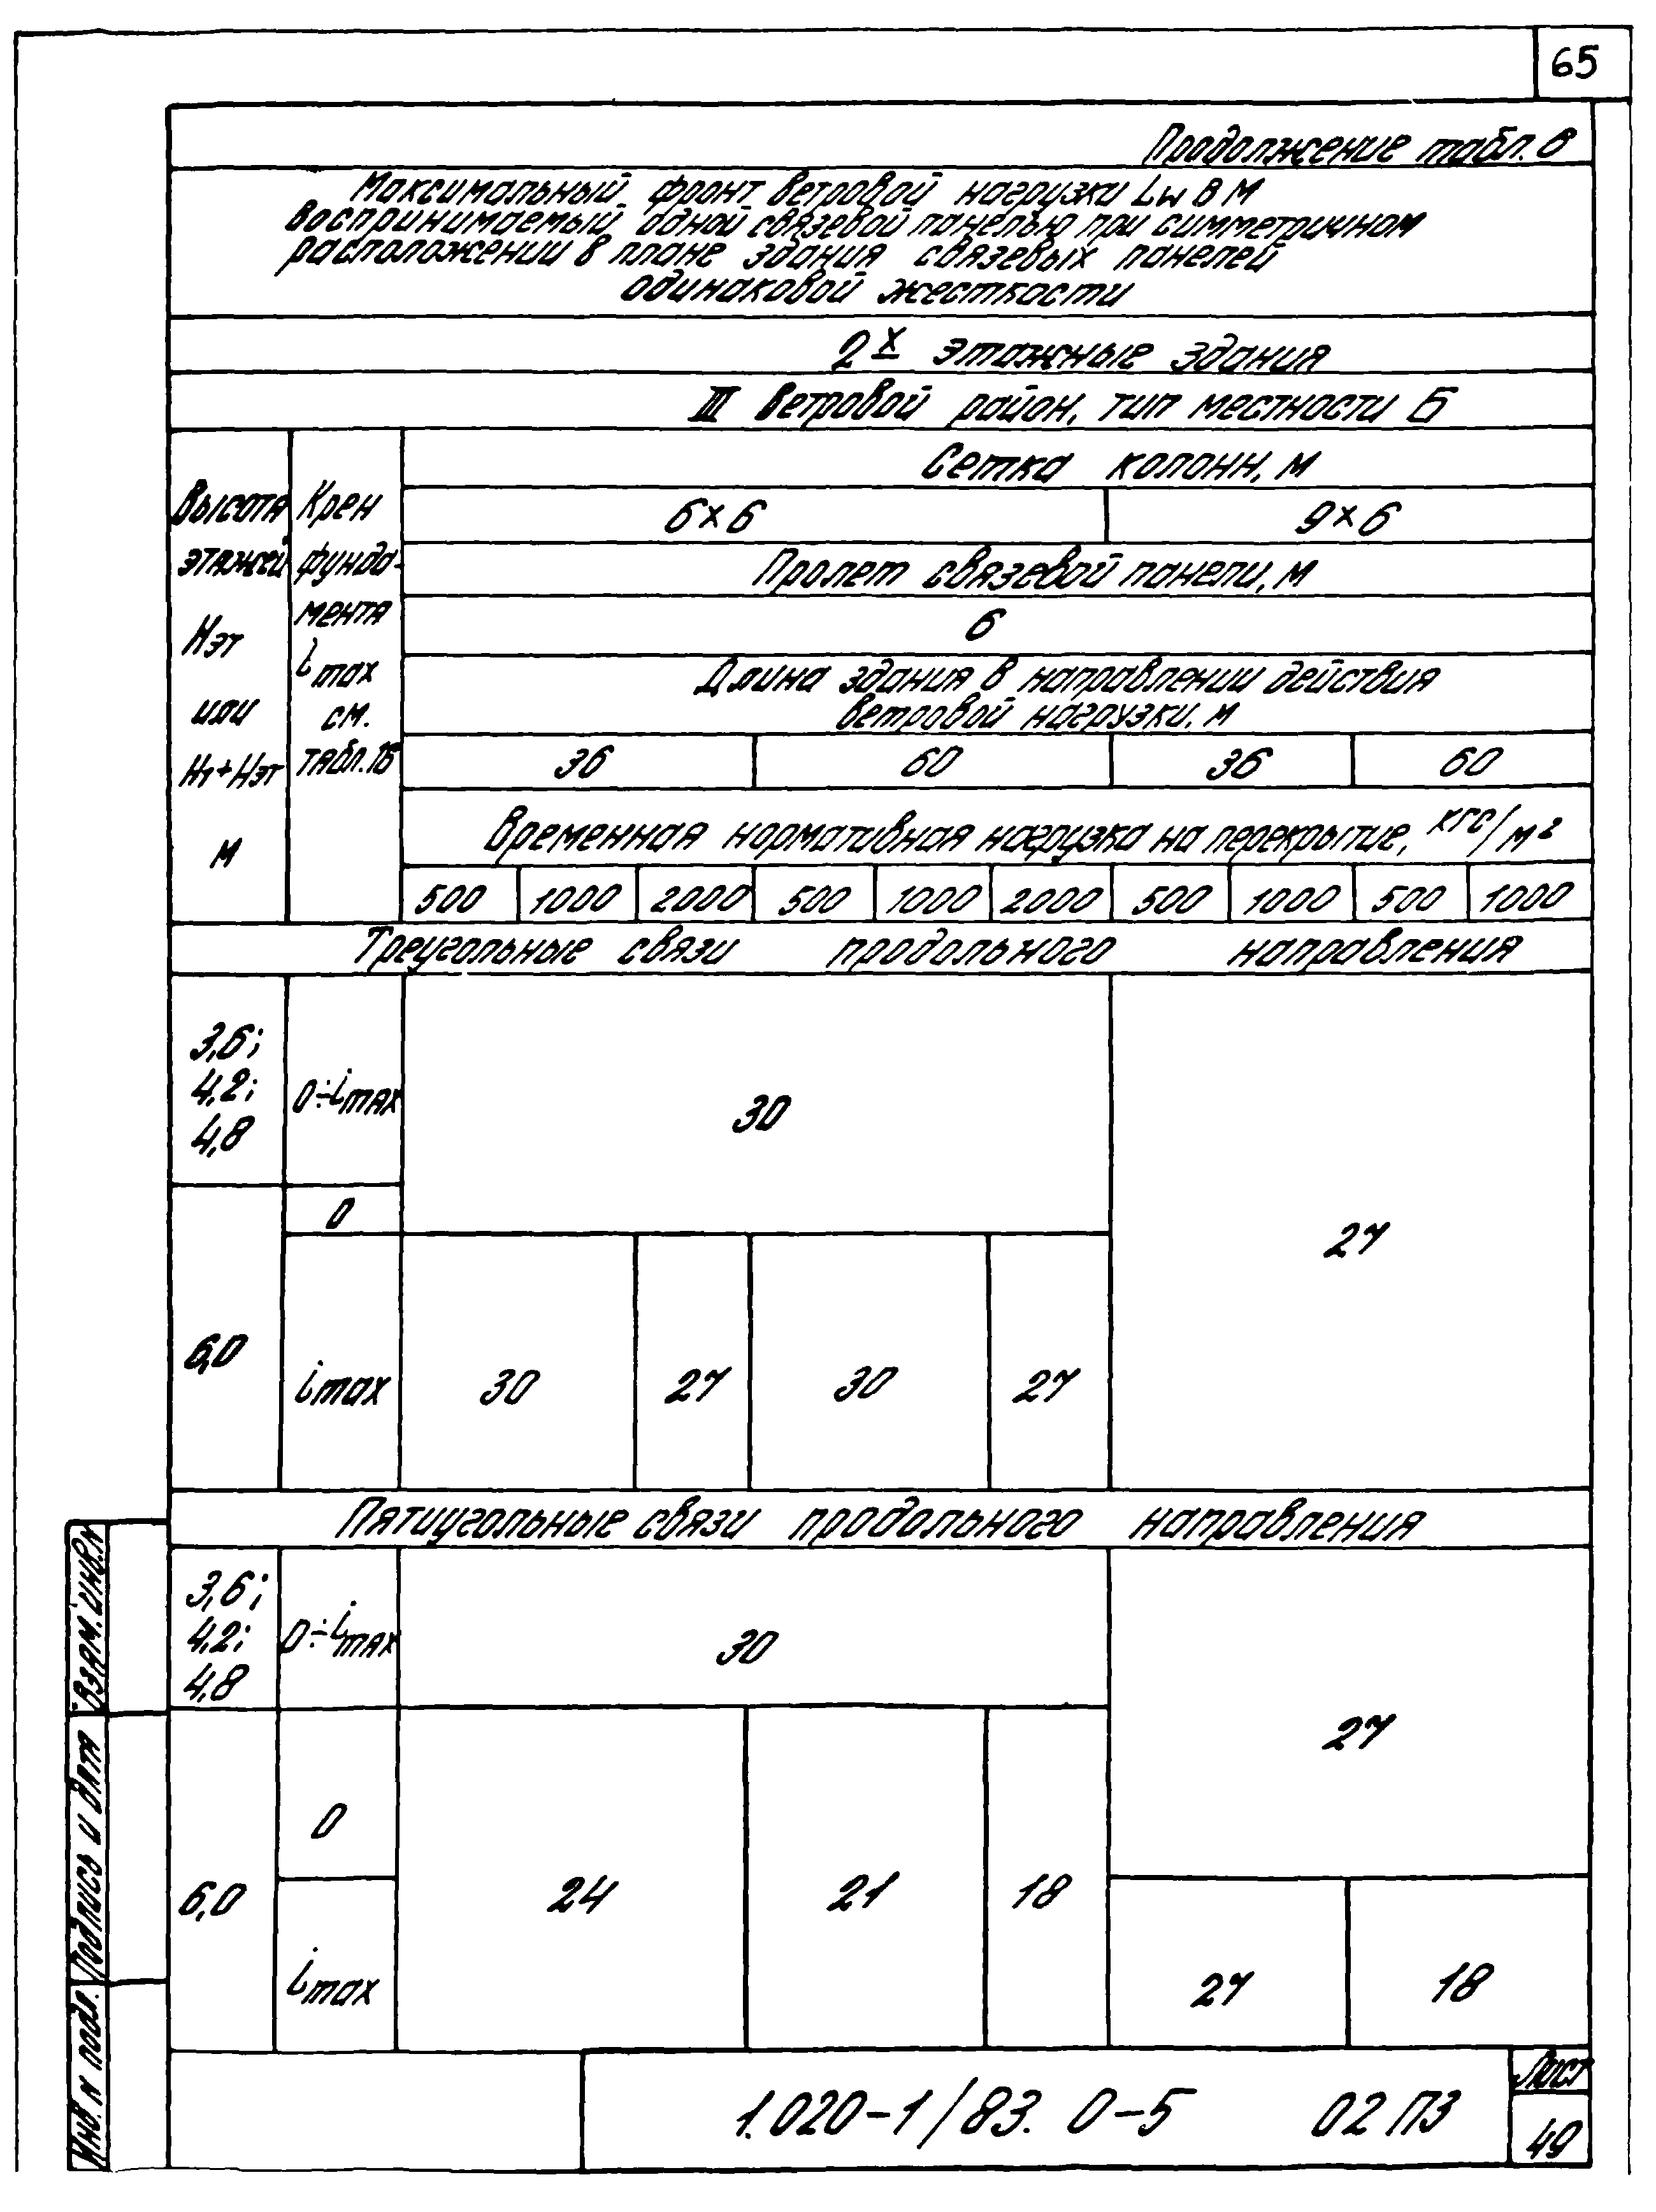 65
Продолжение табл. 8
Максимальный фронт ветровой нагрузки Lw в м
воспринимаемый одной связевой панелью при симметричном
расположении в плане здания связевых панелей
одинаковой жесткости
2х этажные здания
III ветровой район, тип местности Б
Высота этажей Нэт или Н1+Нэт м
Крен фунда-мента imax см. табл.16
Сетка колонн, м
6×6 9×6
Пролет связевой панели, м
6
Длина здания в направлении действия
ветровой нагрузки, м
36 60 36 60
Временная нормативная нагрузка на перекрытие, кгс/м²
500 1000 2000 500 1000 2000 500 1000 500 1000
Треугольные связи продольного направления
3,6;
4,2;
4,8
0÷imax
30
27
0
6,0
imax
30 27 30 27
Пятиугольные связи продольного направления
3,6;
4,2;
4,8
0÷imax
30
27
0
6,0
24 21 18
imax
27 18
Взам. инв. N
Подпись и дата
Инв. N подл.
1.020-1/83. 0-5 02 ПЗ
Лист
49